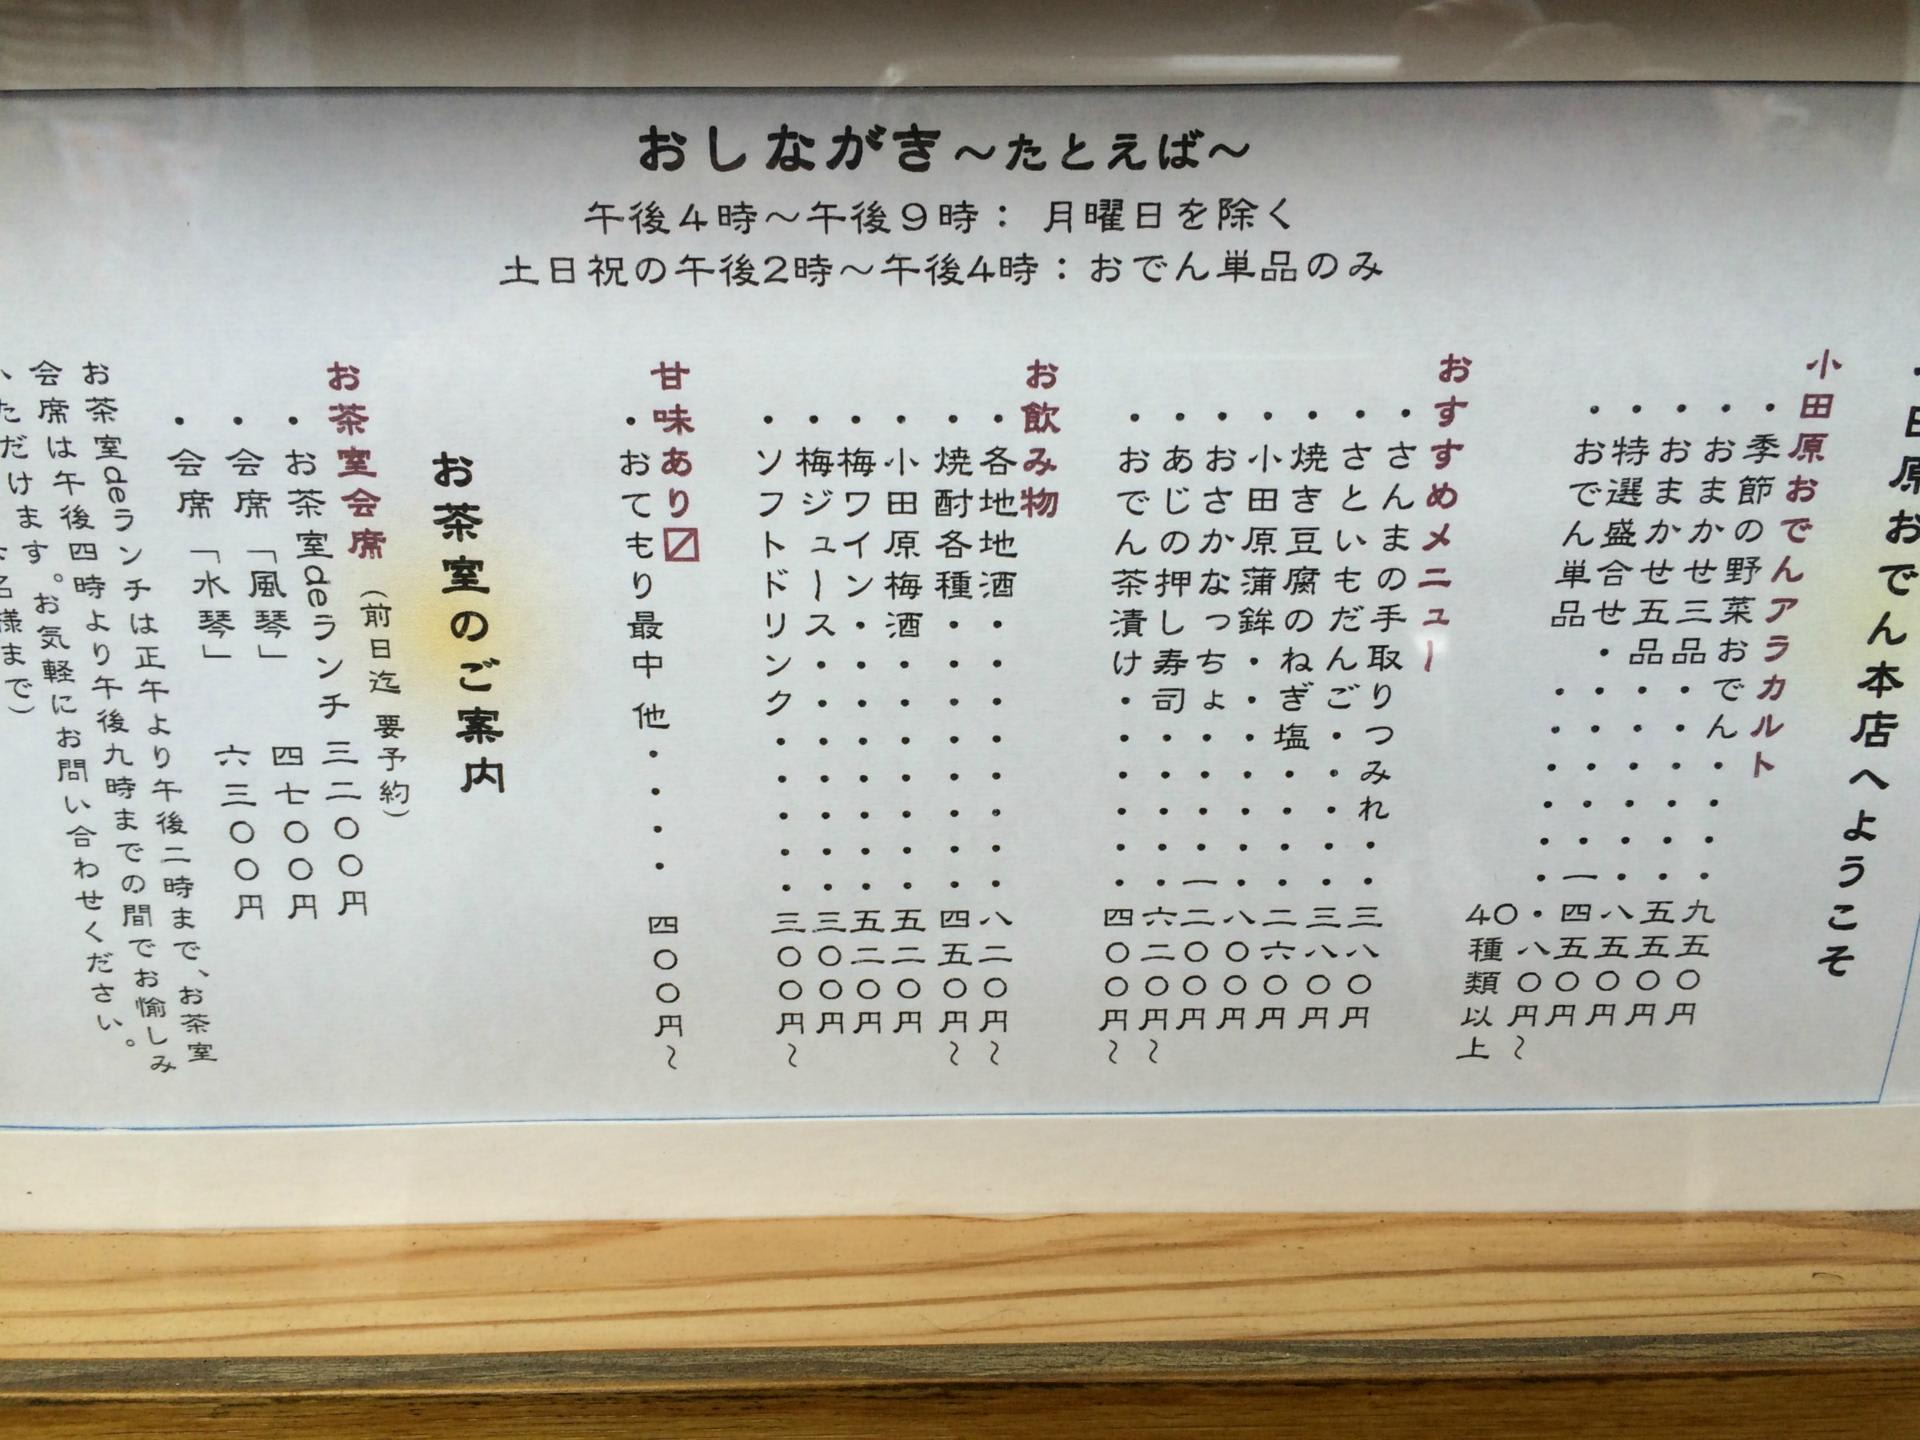 おしながき〜たとえば〜
午後4時〜午後9時： 月曜日を除く
土日祝の午後2時〜午後4時：おでん単品のみ
田原おでん本店へようこそ
小田原おでんアラカルト
・季節の野菜おでん・・・・九五〇円
・おまかせ三品・・・・・・五五〇円
・おまかせ五品・・・・・・八五〇円
・特選盛合せ・・・・・・一四五〇円
・おでん単品・・・・・・・八〇円〜
40種類以上
おすすめメニュー
・さんまの手取りつみれ・・三八〇円
・さといもだんご・・・・・三八〇円
・焼き豆腐のねぎ塩・・・・二六〇円
・小田原蒲鉾・・・・・・・八〇〇円
・おさかなっちょ・・・・一二〇〇円
・あじの押し寿司・・・・・六二〇円〜
・おでん茶漬け・・・・・・四〇〇円〜
お飲み物
・各地地酒・・・・・・・・八二〇円〜
・焼酎各種・・・・・・・・四五〇円〜
・小田原梅酒・・・・・・・五二〇円
・梅ワイン・・・・・・・・五二〇円
・梅ジュース・・・・・・・三〇〇円
・ソフトドリンク・・・・・三〇〇円〜
甘味あり〼
・おてもり最中 他・・・・四〇〇円〜
お茶室のご案内
お茶室会席（前日迄 要予約）
・お茶室deランチ 三二〇〇円
・会席「風琴」 四七〇〇円
・会席「水琴」 六三〇〇円
お茶室deランチは正午より午後二時まで、お茶室
会席は午後四時より午後九時までの間でお愉しみ
いただけます。お気軽にお問い合わせください。
名様まで）